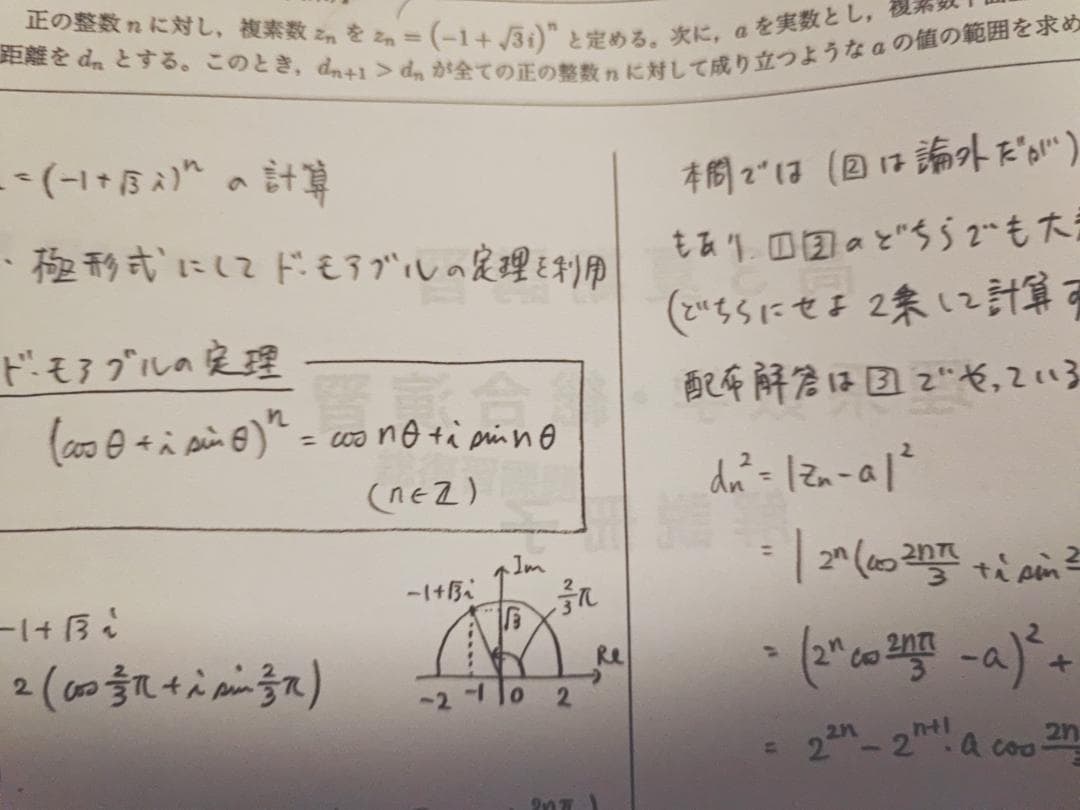 正の整数nに対し，複素数zₙをzₙ=(-1+√3i)ⁿと定める。次に，aを実数とし，複素数平面
距離をdₙとする。このとき，dₙ₊₁>dₙが全ての正の整数nに対して成り立つようなaの値の範囲を求め
=(-1+√3i)ⁿの計算
・極形式にしてド・モアブルの定理を利用
ド・モアブルの定理
(cosθ+i sinθ)ⁿ=cos nθ+i sin nθ
(n∈ℤ)
-1+√3i
2(cos 2/3π+i sin 2/3π)
Im
-1+√3i
2/3π
√3
Re
-2 -1 0 2
本問では(②は論外だが)
もあり、①③のどちらでも大
(どちらにせよ2乗して計算す
配布解答は③でやっている
dₙ²=|zₙ-a|²
=|2ⁿ(cos 2nπ/3+i sin 2
=(2ⁿcos 2nπ/3-a)²+
=2²ⁿ-2ⁿ⁺¹·a cos 2n
2nπ
高3夏期講習
理系数学・総合演習
解説冊子